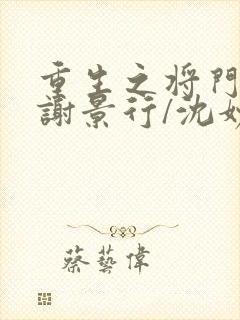 重生之将門
謝景行/沈妙
蔡藝偉